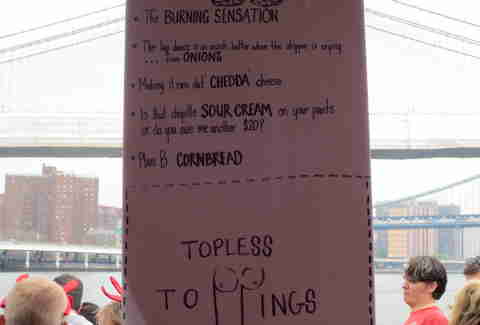 • The BURNING SENSATION
• The lap dance is so much better when the stripper is crying
... from ONIONS
• Making it rain dat' CHEDDA' cheese
• Is that chipotle SOUR CREAM on your pants
or do you owe me another $20?
• Plan B CORNBREAD
TOPLESS
TOPPINGS